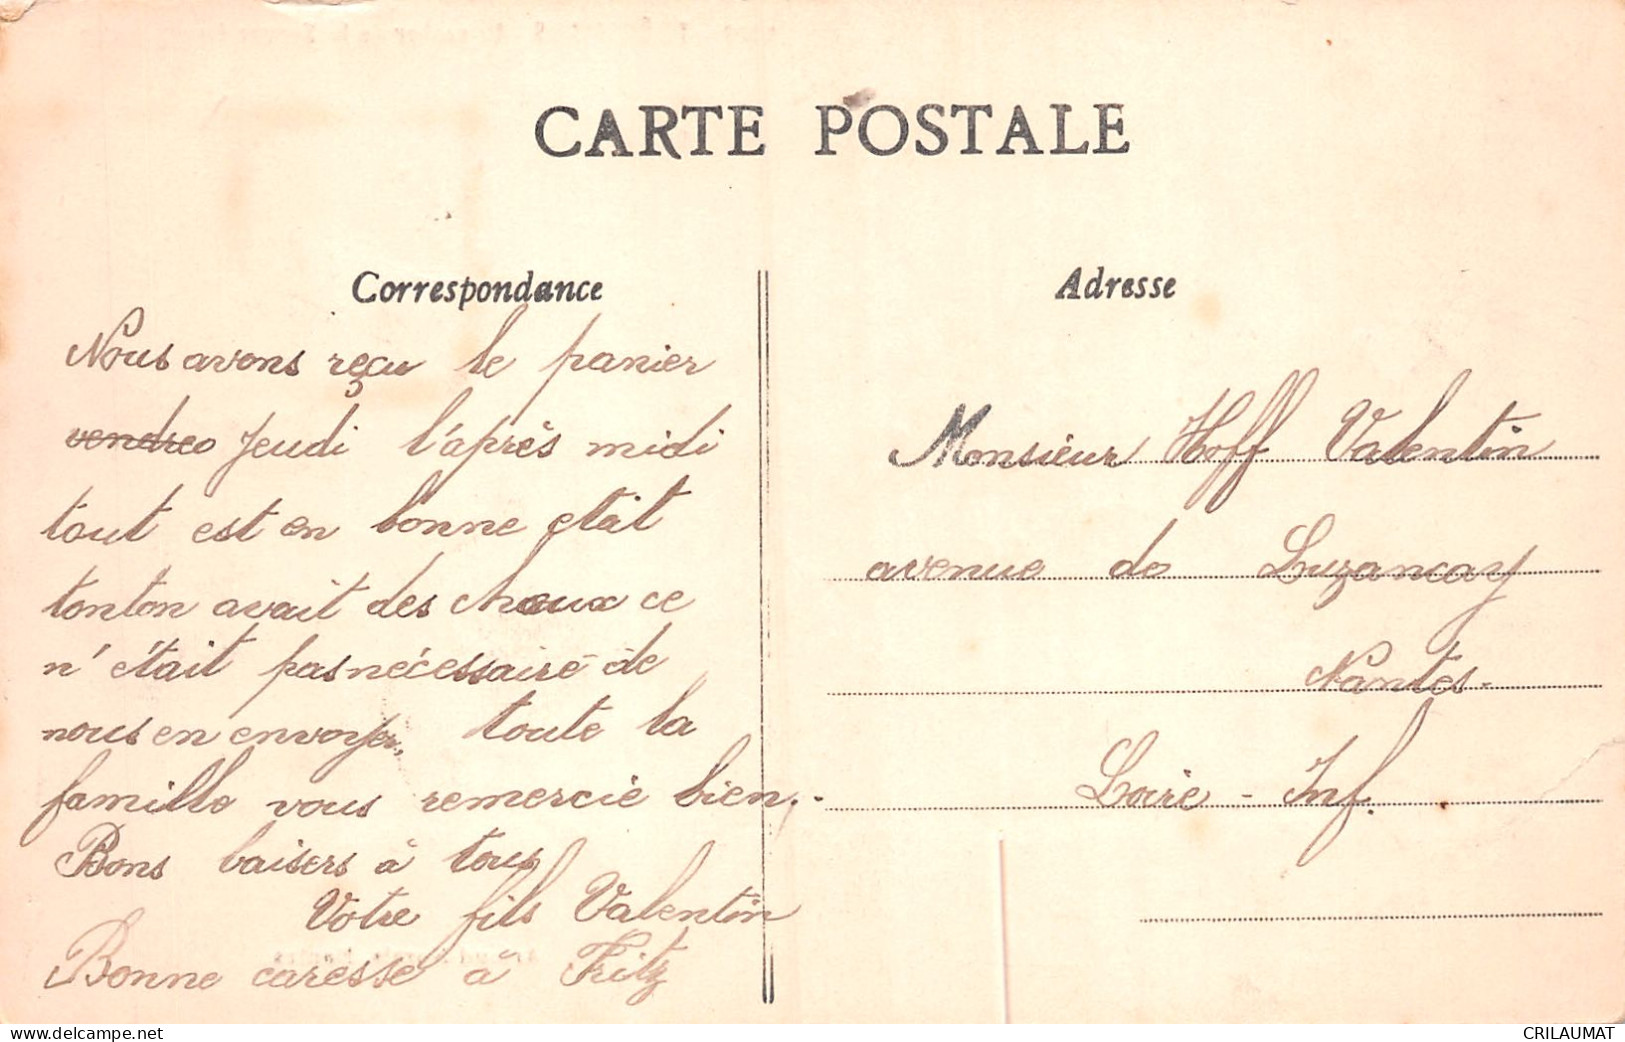 CARTE POSTALE
Correspondance
Nous avons reçu le panier
vendreo Jeudi l'après midi
tout est en bonne etat
tonton avait des choux ce
n'était pas nécessaire de
nous en envoyer, toute la
famille vous remercie bien.
Bons baisers à tous
Votre fils Valentin
Bonne caresse à Fritz
Adresse
Monsieur Hoff Valentin
avenue de Luzancay
Nantes-
Loire - Inf.
www.delcampe.net
CRILAUMAT